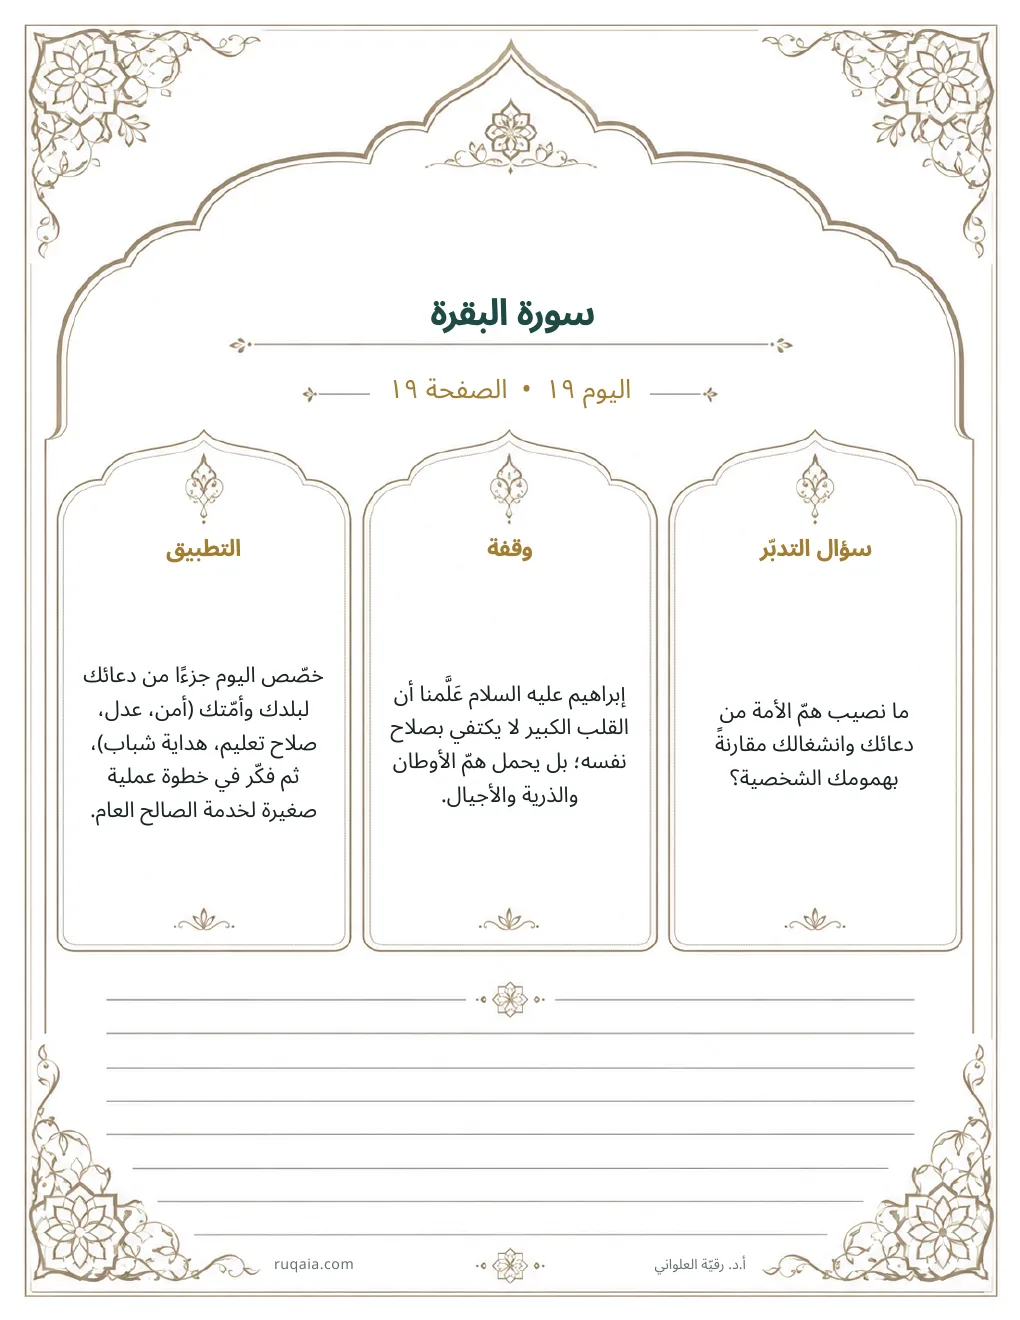 سورة البقرة
اليوم ١٩ • الصفحة ١٩
سؤال التدبّر
ما نصيب همّ الأمة من
دعائك وانشغالك مقارنةً
بهمومك الشخصية؟
وقفة
إبراهيم عليه السلام عَلَّمنا أن
القلب الكبير لا يكتفي بصلاح
نفسه؛ بل يحمل همّ الأوطان
والذرية والأجيال.
التطبيق
خصّص اليوم جزءًا من دعائك
لبلدك وأمّتك (أمن، عدل،
صلاح تعليم، هداية شباب)،
ثم فكّر في خطوة عملية
صغيرة لخدمة الصالح العام.
أ.د. رقيّة العلواني
ruqaia.com